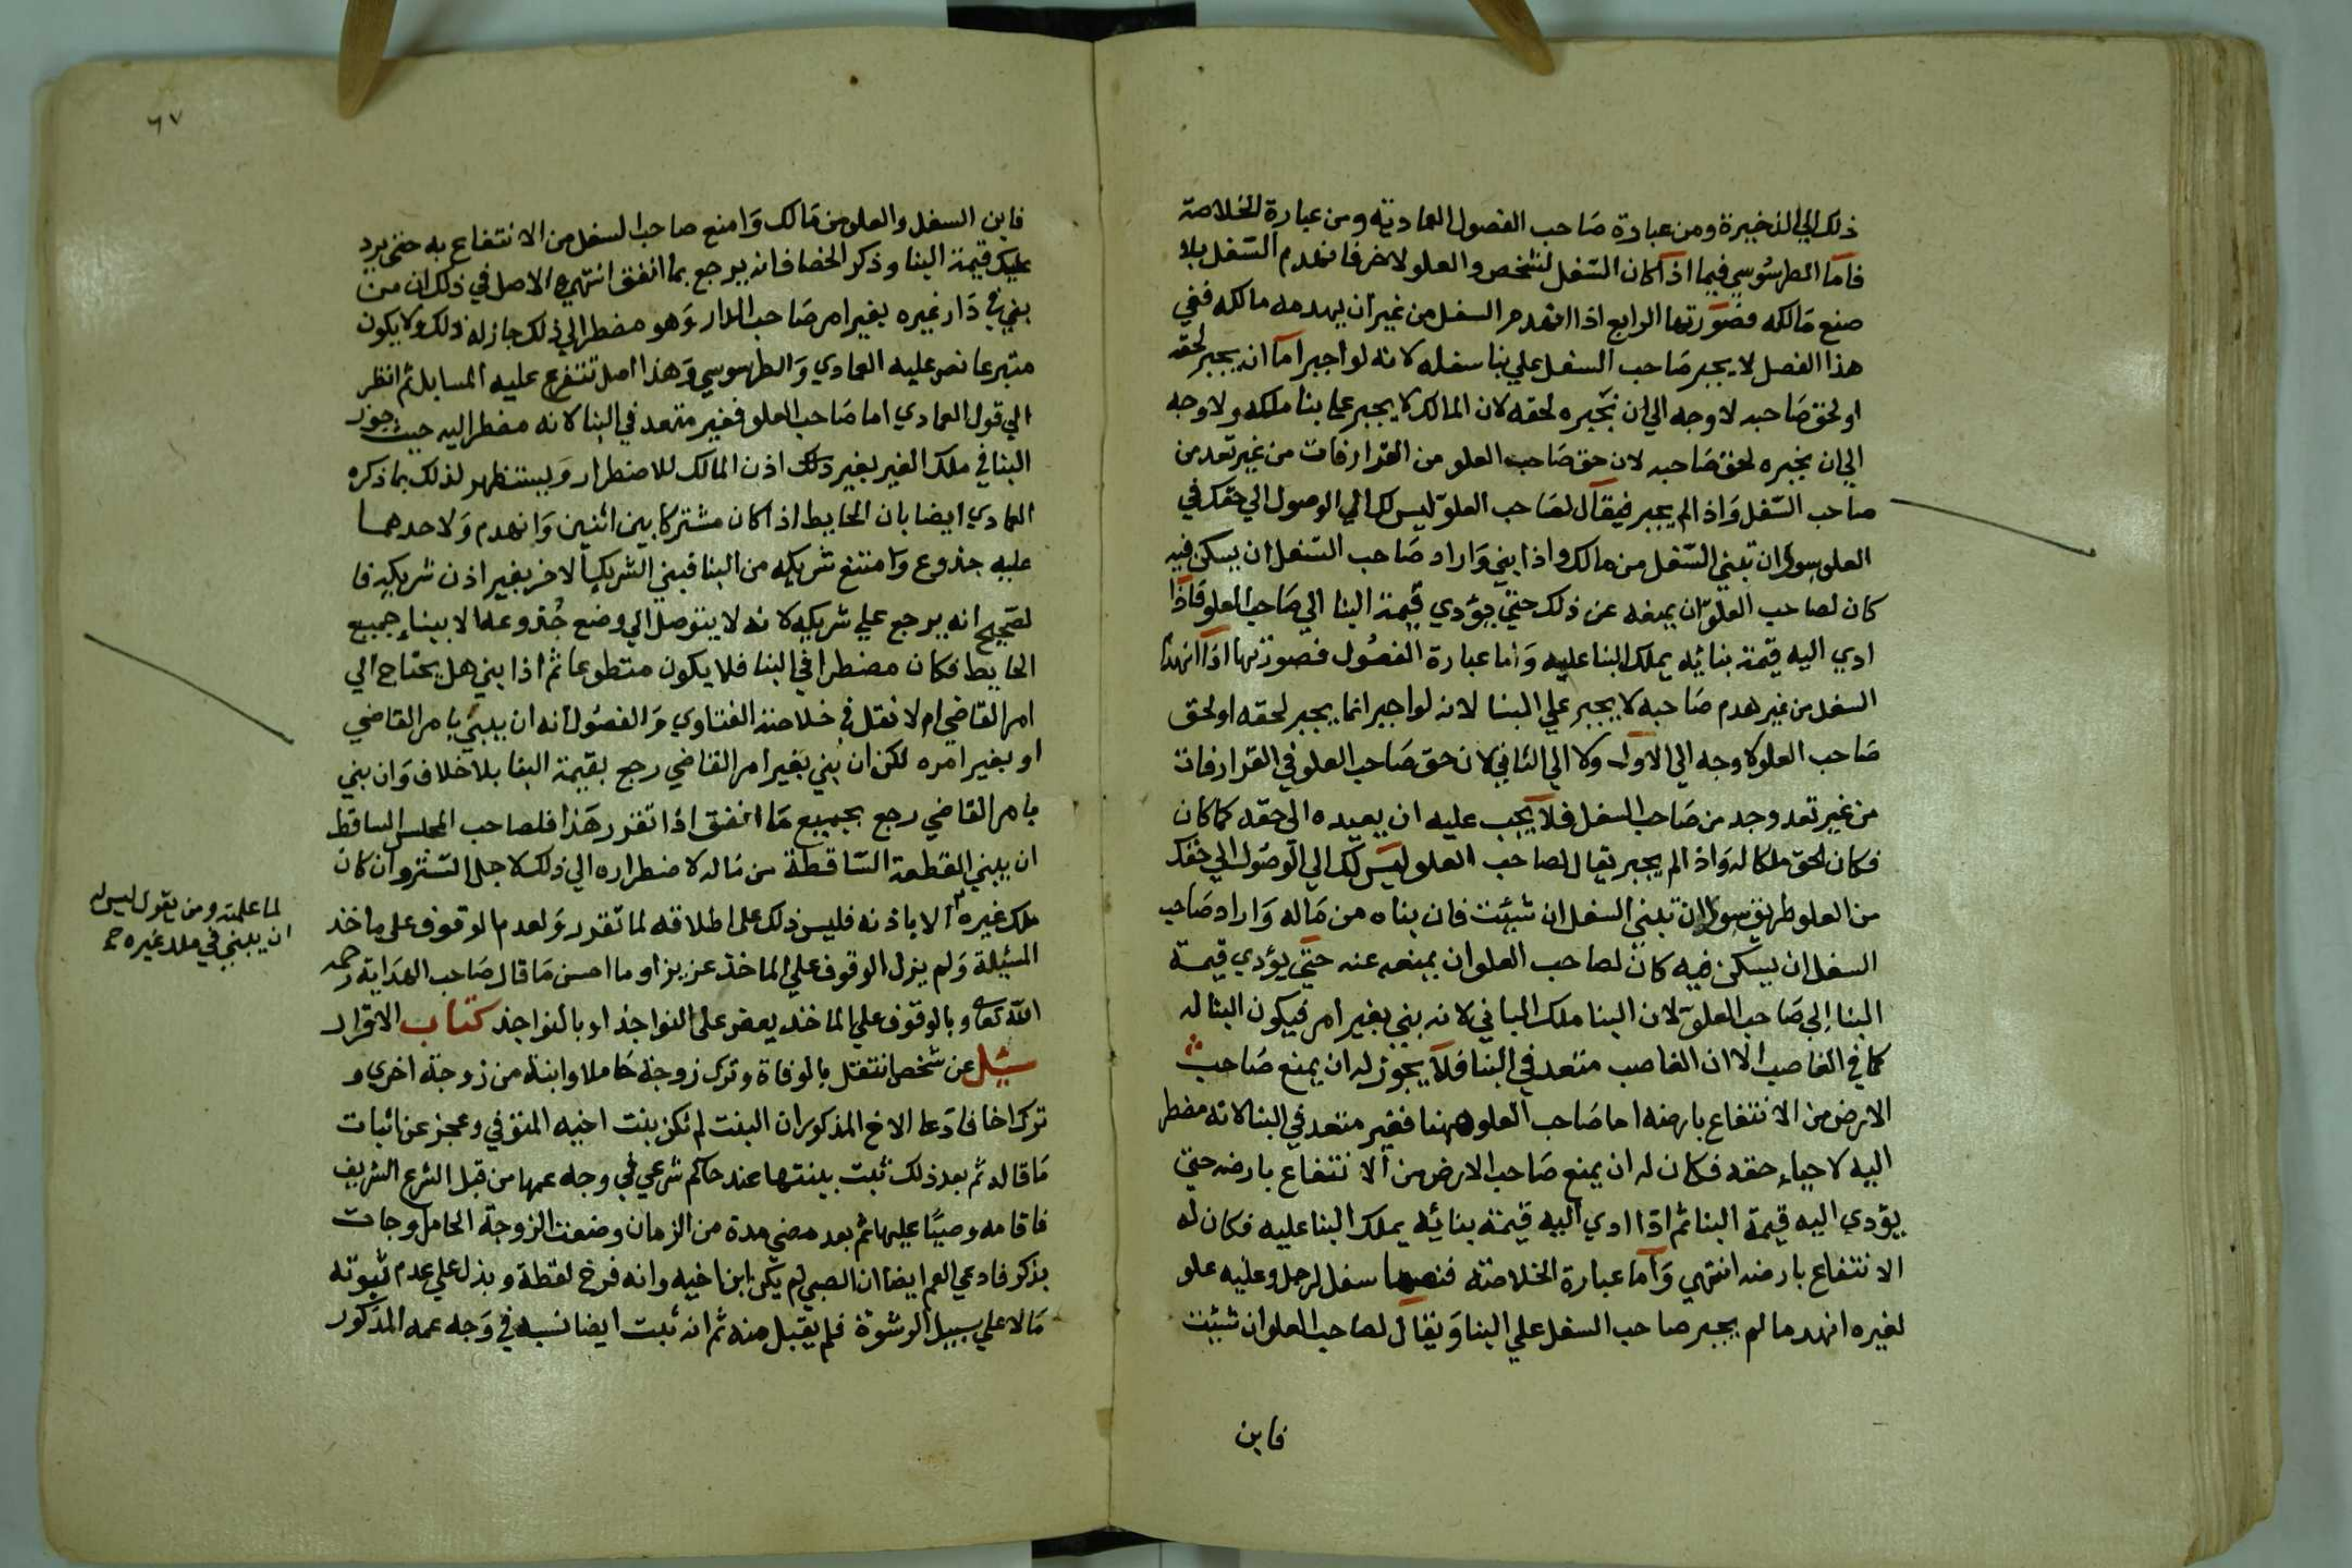 ذلك الي الذخيرة ومن عبارة صاحب الفصول العمادية ومن عبارة الخلاصة
فاما الطرسوسي فيما اذا كان السفل لشخص والعلو لاخر فانهدم السفل بلا
صنع مالكه فصورتها الرابع اذا انهدم السفل من غير ان يهدمه مالكه ففي
هذا الفصل لا يجبر صاحب السفل علي بنا سفله لانه لو اجبر اما ان يجبر لحقه
او لحق صاحبه لا وجه الي ان نجبره لحقه لان المالك لا يجبر علي بنا ملكه ولا وجه
الي ان يجبره لحق صاحبه لان حق صاحب العلو من القرار فات من غير تعد من
صاحب السفل واذا لم يجبر فيقال لصاحب العلو ليس لك الي الوصول الي حقك في
العلو سوا ان تبني السفل من مالك واذا بني واراد صاحب السفل ان يسكن فيه
كان لصاحب العلو ان يمنعه عن ذلك حتي يؤدي قيمة البنا الي صاحب العلو فاذا
ادي اليه قيمة بنائه يملك البنا عليه واما عبارة الفصول فصورتها اذا انهدا
السفل من غير هدم صاحبه لا يجبر علي البنا لانه لو اجبر انما يجبر لحقه او لحق
صاحب العلو لا وجه الي الاول ولا الي الثاني لان حق صاحب العلو في القرار فات
من غير تعد وجد من صاحب السفل فلا يجب عليه ان يعيده الي حقه كما كان
فكان لحق ملكا له واذا لم يجبر يقال لصاحب العلو ليس لك الي الوصول الي حقك
من العلو طريق سوا ان تبني السفل ان شيت فان بناه من ماله واراد صاحب
السفل ان يسكن فيه كان لصاحب العلو ان يمنعه عنه حتي يؤدي قيمة
البنا الي صاحب العلو لان البنا ملك الباني لانه بني بغير امر فيكون البنا له
كما في الغاصب الا ان الغاصب متعد في البنا فلا يجوز له ان يمنع صاحب
الارض من الانتفاع بارضه اما صاحب العلو ههنا فغير متعد في البنا لانه مضطر
اليه لاحياء حقه فكان له ان يمنع صاحب الارض من الانتفاع بارضه حتي
يؤدي اليه قيمة البنا ثم اذا ادي اليه قيمة بنائه يملك البنا عليه فكان له
الانتفاع بارضه انتهي واما عبارة الخلاصة فنصها سفل لرجل وعليه علو
لغيره انهدما لم يجبر صاحب السفل علي البنا ويقال لصاحب العلو ان شيت
فابن
٦٧
فابن السفل والعلو من مالك وامنع صاحب السفل من الانتفاع به حتي يرد
عليك قيمة البنا وذكر الخصاف انه يرجع بما انفق انتهي والاصل في ذلك ان من
بني في دار غيره بغير امر صاحب الدار وهو مضطر الي ذلك جاز له ذلك ولا يكون
متبرعا نص عليه العمادي والطرسوسي وهذا اصل تتفرع عليه المسايل ثم انظر
الي قول العمادي اما صاحب العلو فغير متعد في البنا لانه مضطر اليه حيث جوز
البنا في ملك الغير بغير ذلك اذن المالك للاضطرار ويستظهر لذلك بما ذكره
العمادي ايضا بان الحايط اذا كان مشتركا بين اثنين وانهدم ولاحدهما
عليه جذوع وامتنع شريكه من البنا فبني الشريك الاخر بغير اذن شريكه فا
لصحيح انه يرجع علي شريكه لانه لا يتوصل الي وضع جذوعه الا ببناء جميع
الحايط فكان مضطرا في البنا فلا يكون متطوعا ثم اذا بني هل يحتاج الي
امر القاضي ام لا نقل في خلاصة الفتاوي والفصول انه ان يبني بامر القاضي
او بغير امره لكن ان بني بغير امر القاضي رجع بقيمة البنا بلا خلاف وان بني
بامر القاضي رجع بجميع ما انفق اذا تقرر هذا فلصاحب المجلس الساقط
ان يبني القطعة الساقطة من ماله لاضطراره الي ذلك لاجل التستر وان كان
ملك غيره الا باذنه فليس ذلك علي اطلاقه لما تقرر ولعدم الوقوف علي ماخذ
المسئلة ولم يزل الوقوف علي الماخذ عزيزا وما احسن ما قال صاحب الهداية رحمه
الله تعالي وبالوقوف علي الماخذ يعض علي النواجذ او بالنواجذ كتاب الاقرار
سيل عن شخص انتقل بالوفاة وترك زوجة حاملا وابنة من زوجة اخري و
ترك اخا فادعا الاخ المذكور ان البنت لم تكن بنت اخيه المتوفي وعجز عن اثبات
ما قاله ثم بعد ذلك ثبت بينتها عند حاكم شرعي في وجه عمها من قبل الشرع الشريف
فاقامه وصيا عليها ثم بعد مضي مدة من الزمان وضعت الزوجة الحامل وجات
بذكر فادعي العم ايضا ان الصبي لم يكن ابن اخيه وانه فرخ لقطة وبذل علي عدم ثبوته
مالا علي سبيل الرشوة فلم يقبل منه ثم انه ثبت ايضا نسبه في وجه عمه المذكور
لما علمته ومن يقول ليس له
ان يبني في ملك غيره